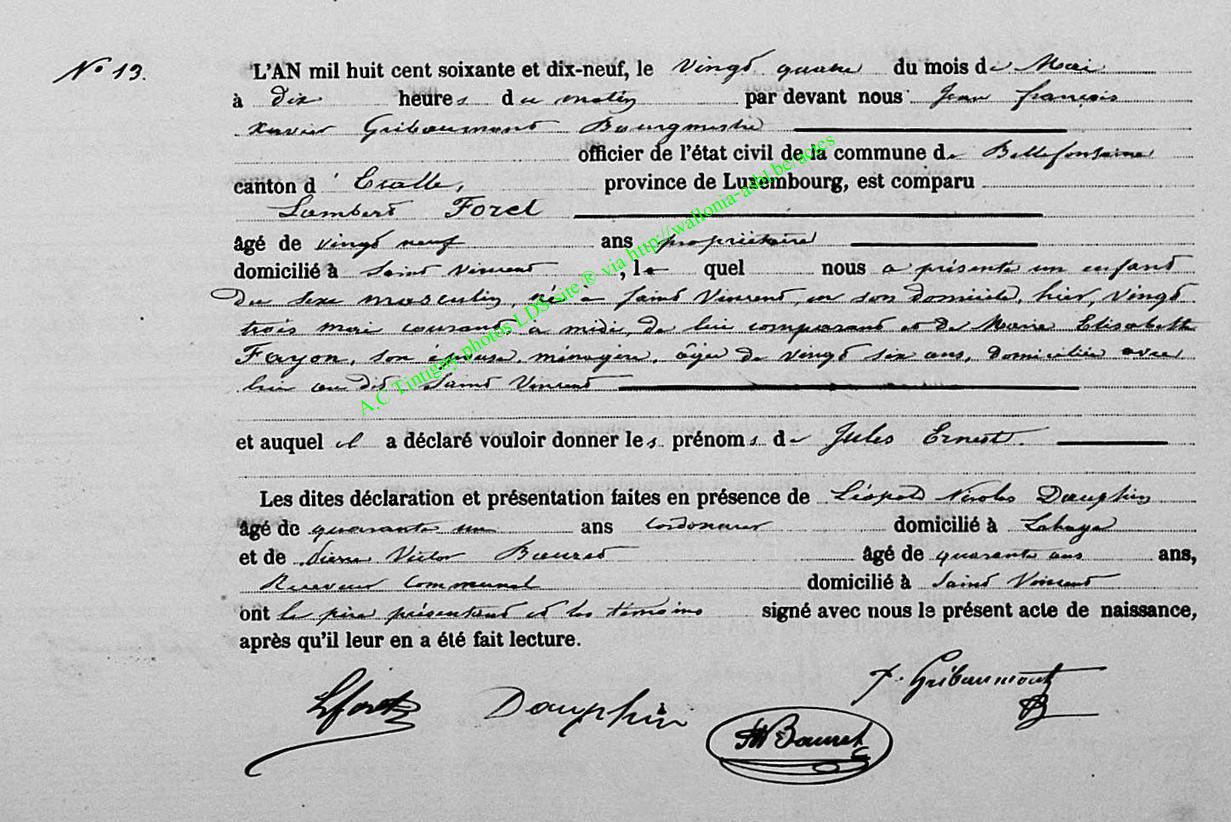 N° 13.
L'AN mil huit cent soixante et dix-neuf, le vingt quatre du mois de Mai
à dix heures du matin par devant nous Jean françois
Xavier Gribaumont Bourgmestre
officier de l'état civil de la commune de Bellefontaine
canton d'Etalle, province de Luxembourg, est comparu
Lambert Foret
âgé de vingt neuf ans propriétaire
domicilié à Saint Vincent, lequel nous a présenté un enfant
du sexe masculin, né à Saint Vincent, en son domicile, hier, vingt
trois mai courant, à midi, de lui comparant et de Marie Elisabeth
Fayon, son épouse, ménagère, âgée de vingt six ans, domiciliée avec
lui au dit Saint Vincent
et auquel il a déclaré vouloir donner les prénoms de Jules Ernest.
Les dites déclaration et présentation faites en présence de Léopold Nicolas Dauphin
âgé de quarante un ans cordonnier domicilié à Lahage
et de Pierre Victor Bauret âgé de quarante ans ans,
Receveur Communal domicilié à Saint Vincent
ont le père présentant et les témoins signé avec nous le présent acte de naissance,
après qu'il leur en a été fait lecture.
LForet Dauphin Bauret f. Gribaumont
A.C Tintigny photos LDS site ® via http://wallonia-asbl.be/actes